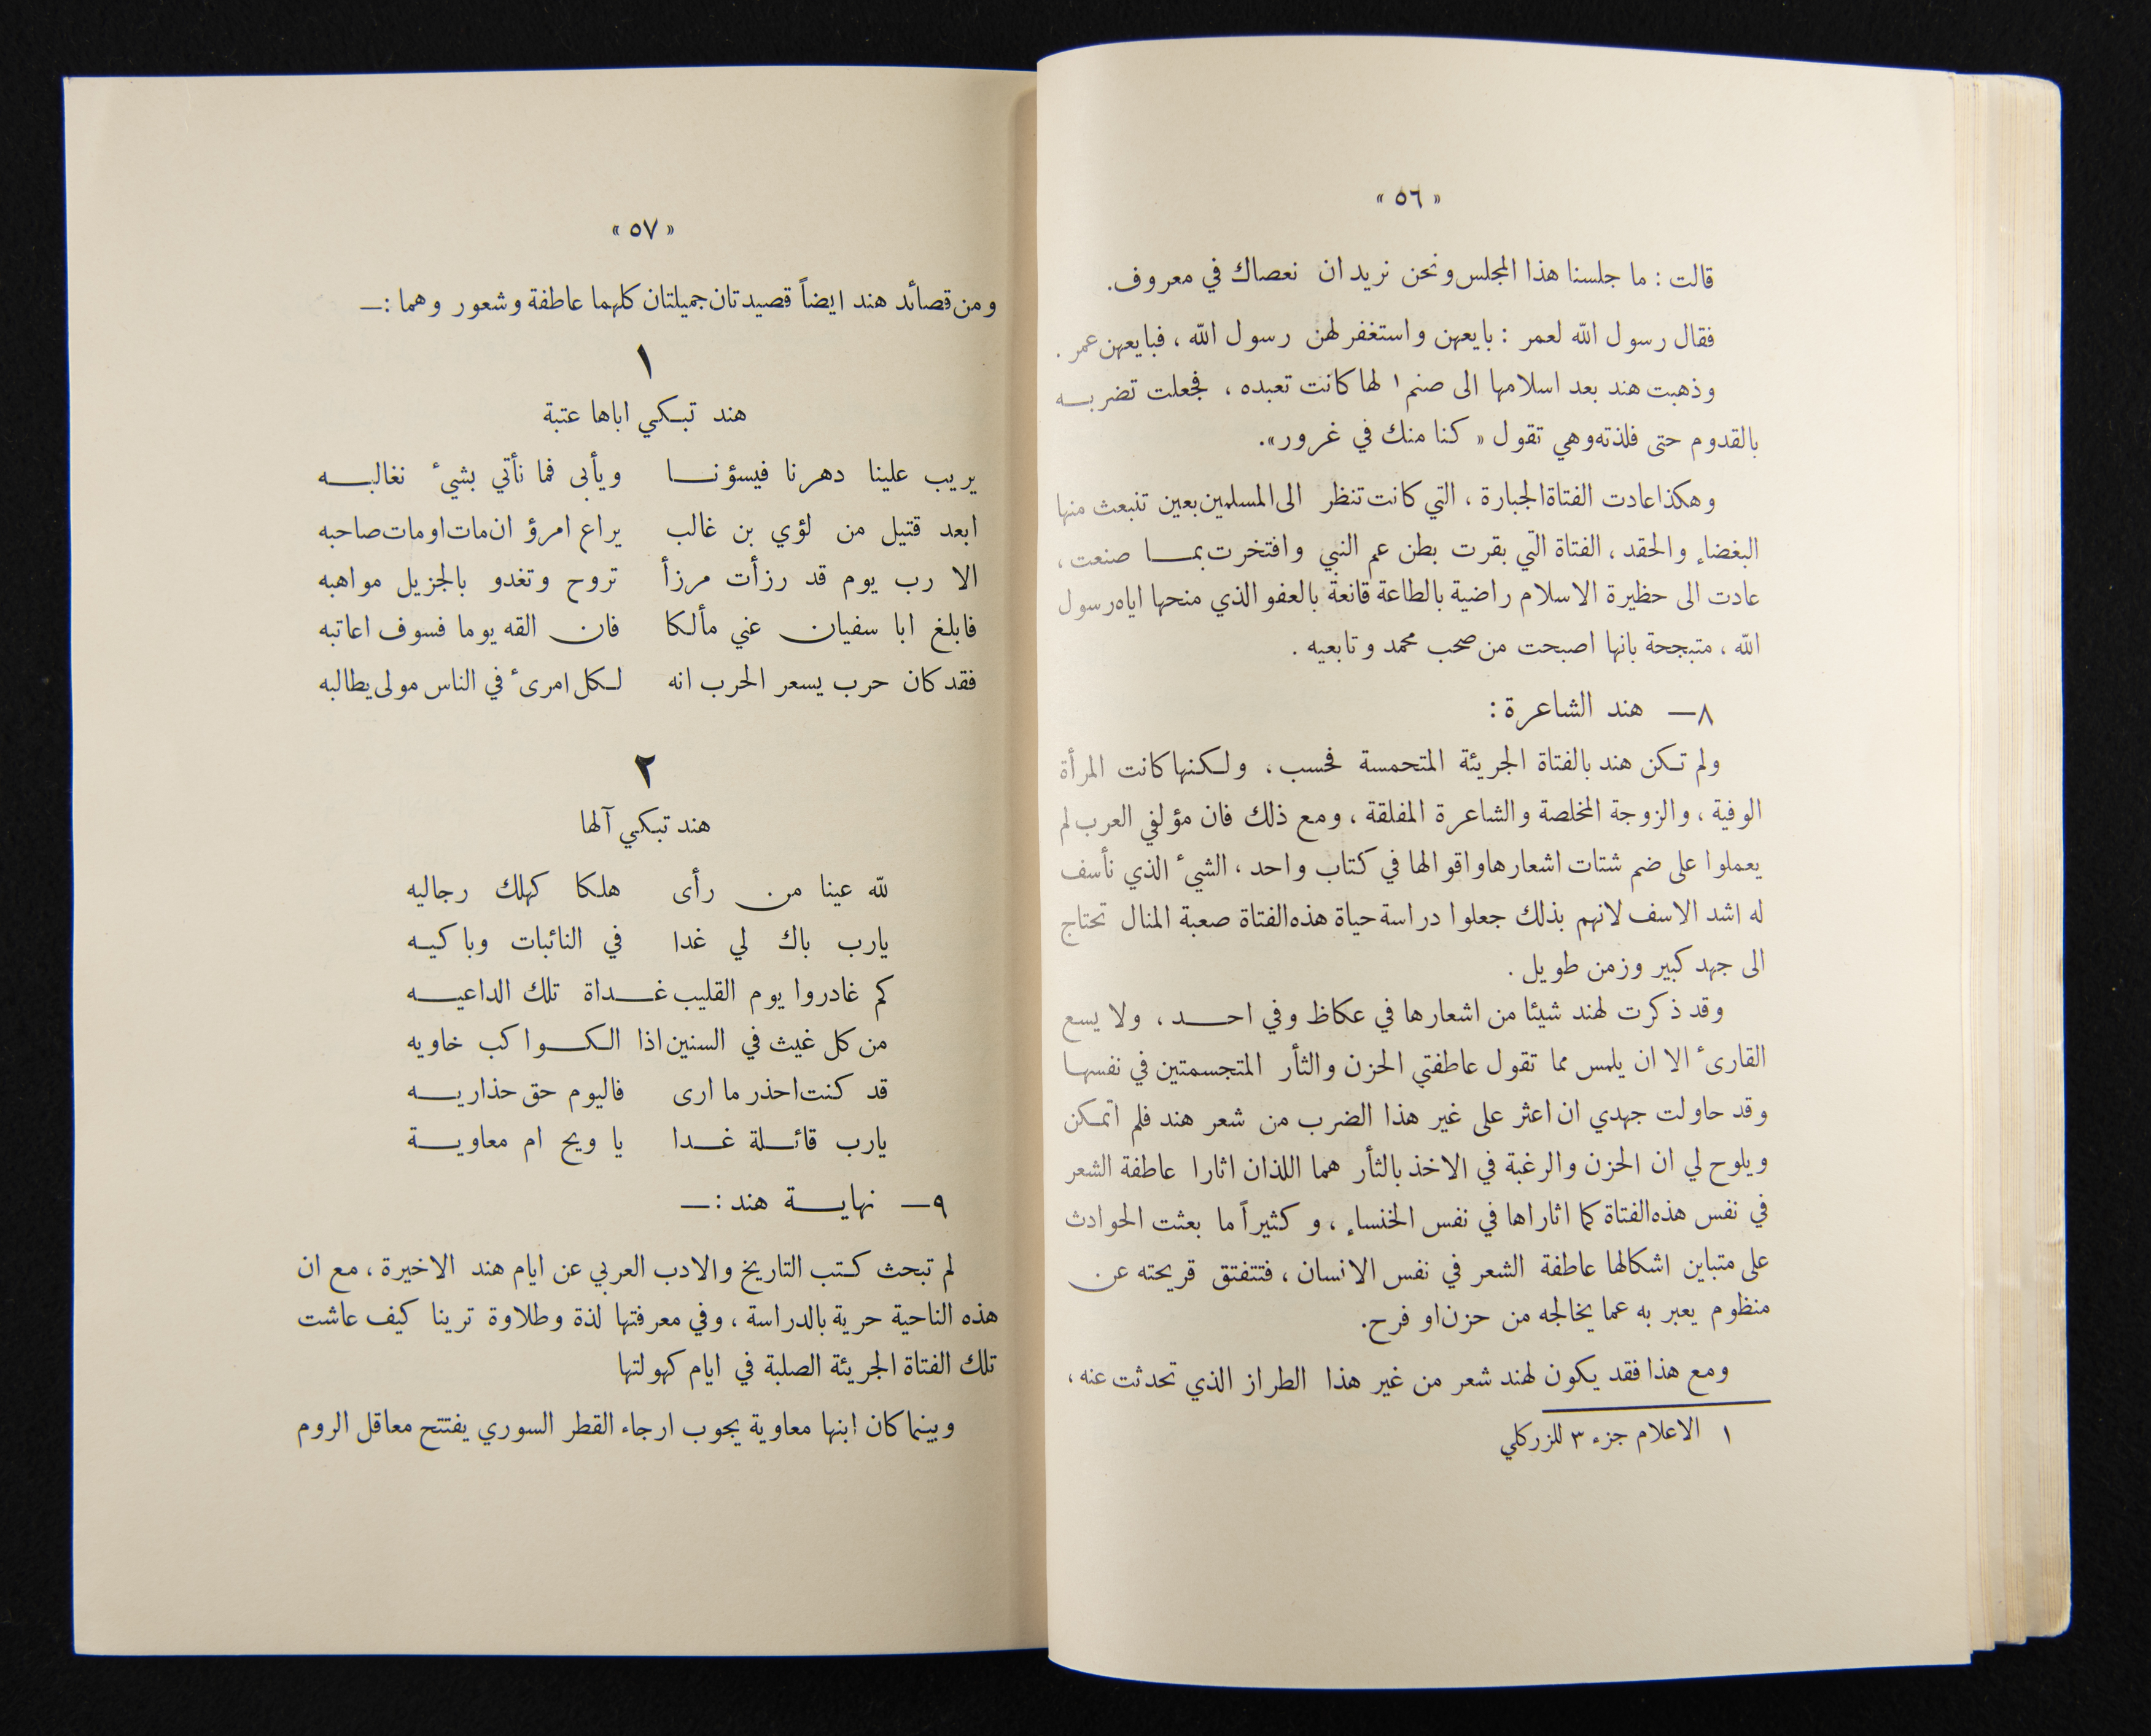 « ٥٦ »
قالت : ما جلسنا هذا المجلس ونحن نريد ان نعصاك في معروف.
فقال رسول الله لعمر : بايعهن واستغفر لهن رسول الله ، فبايعهن عمر .
وذهبت هند بعد اسلامها الى صنم ١ لها كانت تعبده ، فجعلت تضربه
بالقدوم حتى فلذته وهي تقول « كنا منك في غرور ».
وهكذا عادت الفتاة الجبارة ، التي كانت تنظر الى المسلمين بعين تنبعث منها
البغضاء والحقد ، الفتاة التي بقرت بطن عم النبي وافتخرت بما صنعت ،
عادت الى حظيرة الاسلام راضية بالطاعة قانعة بالعفو الذي منحها اياه رسول
الله ، متبجحة بانها اصبحت من صحب محمد وتابعيه .
٨ — هند الشاعرة :
ولم تكن هند بالفتاة الجريئة المتحمسة فحسب ، ولكنها كانت المرأة
الوفية ، والزوجة المخلصة والشاعرة المفلقة ، ومع ذلك فان مؤلفي العرب لم
يعملوا على ضم شتات اشعارها واقوالها في كتاب واحد ، الشيء الذي نأسف
له اشد الاسف لانهم بذلك جعلوا دراسة حياة هذه الفتاة صعبة المنال تحتاج
الى جهد كبير وزمن طويل .
وقد ذكرت لهند شيئا من اشعارها في عكاظ وفي احد ، ولا يسع
القارئ الا ان يلمس مما تقول عاطفتي الحزن والثأر المتجسمتين في نفسها
وقد حاولت جهدي ان اعثر على غير هذا الضرب من شعر هند فلم اتمكن
ويلوح لي ان الحزن والرغبة في الاخذ بالثأر هما اللذان اثارا عاطفة الشعر
في نفس هذه الفتاة كما اثاراها في نفس الخنساء ، وكثيراً ما بعثت الحوادث
على متباين اشكالها عاطفة الشعر في نفس الانسان ، فتتفتق قريحته عن
منظوم يعبر به عما يخالجه من حزن او فرح.
ومع هذا فقد يكون لهند شعر من غير هذا الطراز الذي تحدثت عنه ،
١ الاعلام جزء ٣ للزركلي
« ٥٧ »
ومن قصائد هند ايضاً قصيدتان جميلتان كلهما عاطفة وشعور وهما :—
١
هند تبكي اباها عتبة
يريب علينا دهرنا فيسؤنا ويأبى فما نأتي بشيء نغالبه
ابعد قتيل من لؤي بن غالب يراع امرؤ ان مات او مات صاحبه
الا رب يوم قد رزأت مرزأ تروح وتغدو بالجزيل مواهبه
فابلغ ابا سفيان عني مألكا فان القه يوما فسوف اعاتبه
فقد كان حرب يسعر الحرب انه لكل امرئ في الناس مولى يطالبه
٢
هند تبكي آلها
لله عينا من رأى هلكا كهلك رجاليه
يارب باك لي غدا في النائبات وباكيه
كم غادروا يوم القليب غداة تلك الداعيه
من كل غيث في السنين اذا الكواكب خاويه
قد كنت احذر ما ارى فاليوم حق حذاريه
يارب قائلة غدا يا ويح ام معاوية
٩ — نهاية هند :—
لم تبحث كتب التاريخ والادب العربي عن ايام هند الاخيرة ، مع ان
هذه الناحية حرية بالدراسة ، وفي معرفتها لذة وطلاوة ترينا كيف عاشت
تلك الفتاة الجريئة الصلبة في ايام كهولتها
وبينما كان ابنها معاوية يجوب ارجاء القطر السوري يفتتح معاقل الروم